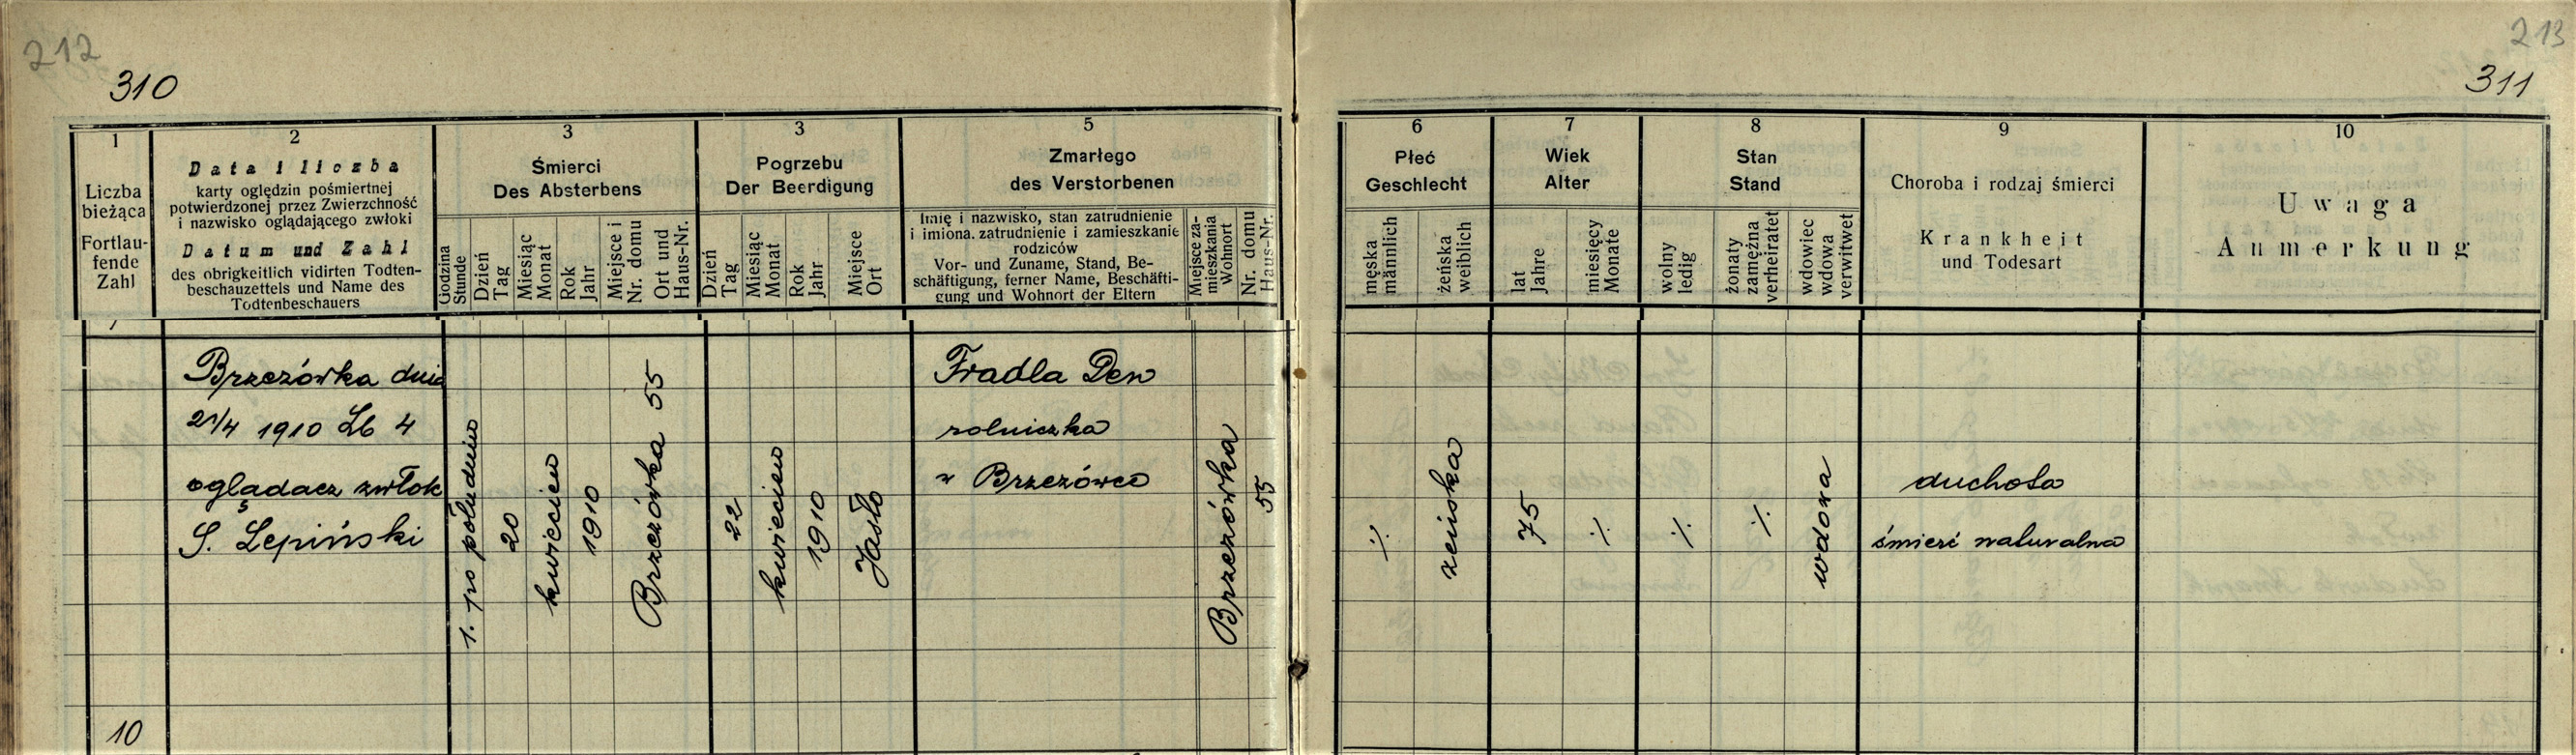 212
310
213
311
1
Liczba
bieżąca
Fortlau-
fende
Zahl
2
Data i liczba
karty oględzin pośmiertnej
potwierdzonej przez Zwierzchność
i nazwisko oglądającego zwłoki
Datum und Zahl
des obrigkeitlich vidirten Todten-
beschauzettels und Name des
Todtenbeschauers
3
Śmierci
Des Absterbens
Godzina
Stunde
Dzień
Tag
Miesiąc
Monat
Rok
Jahr
Miejsce i
Nr. domu
Ort und
Haus-Nr.
3
Pogrzebu
Der Beerdigung
Dzień
Tag
Miesiąc
Monat
Rok
Jahr
Miejsce
Ort
5
Zmarłego
des Verstorbenen
Imię i nazwisko, stan zatrudnienie
i imiona. zatrudnienie i zamieszkanie
rodziców
Vor- und Zuname, Stand, Be-
schäftigung, ferner Name, Beschäfti-
gung und Wohnort der Eltern
Miejsce za-
mieszkania
Wohnort
Nr. domu
Haus-Nr.
6
Płeć
Geschlecht
męska
männlich
żeńska
weiblich
7
Wiek
Alter
lat
Jahre
miesięcy
Monate
8
Stan
Stand
wolny
ledig
żonaty
zamężna
verheiratet
wdowiec
wdowa
verwitwet
9
Choroba i rodzaj śmierci
Krankheit
und Todesart
10
Uwaga
Aumerkung
Brzezówka dnia
21/4 1910 Lb 4
oglądacz zwłok
S. Lepiński
1. po południu
20
kwiecień
1910
Brzezówka 55
22
kwiecień
1910
Jasło
Fradla Den
rolniczka
w Brzezówce
Brzezówka
55
·/.
żeńska
75
·/.
·/.
·/.
wdowa
duchota
śmierć naturalna
10